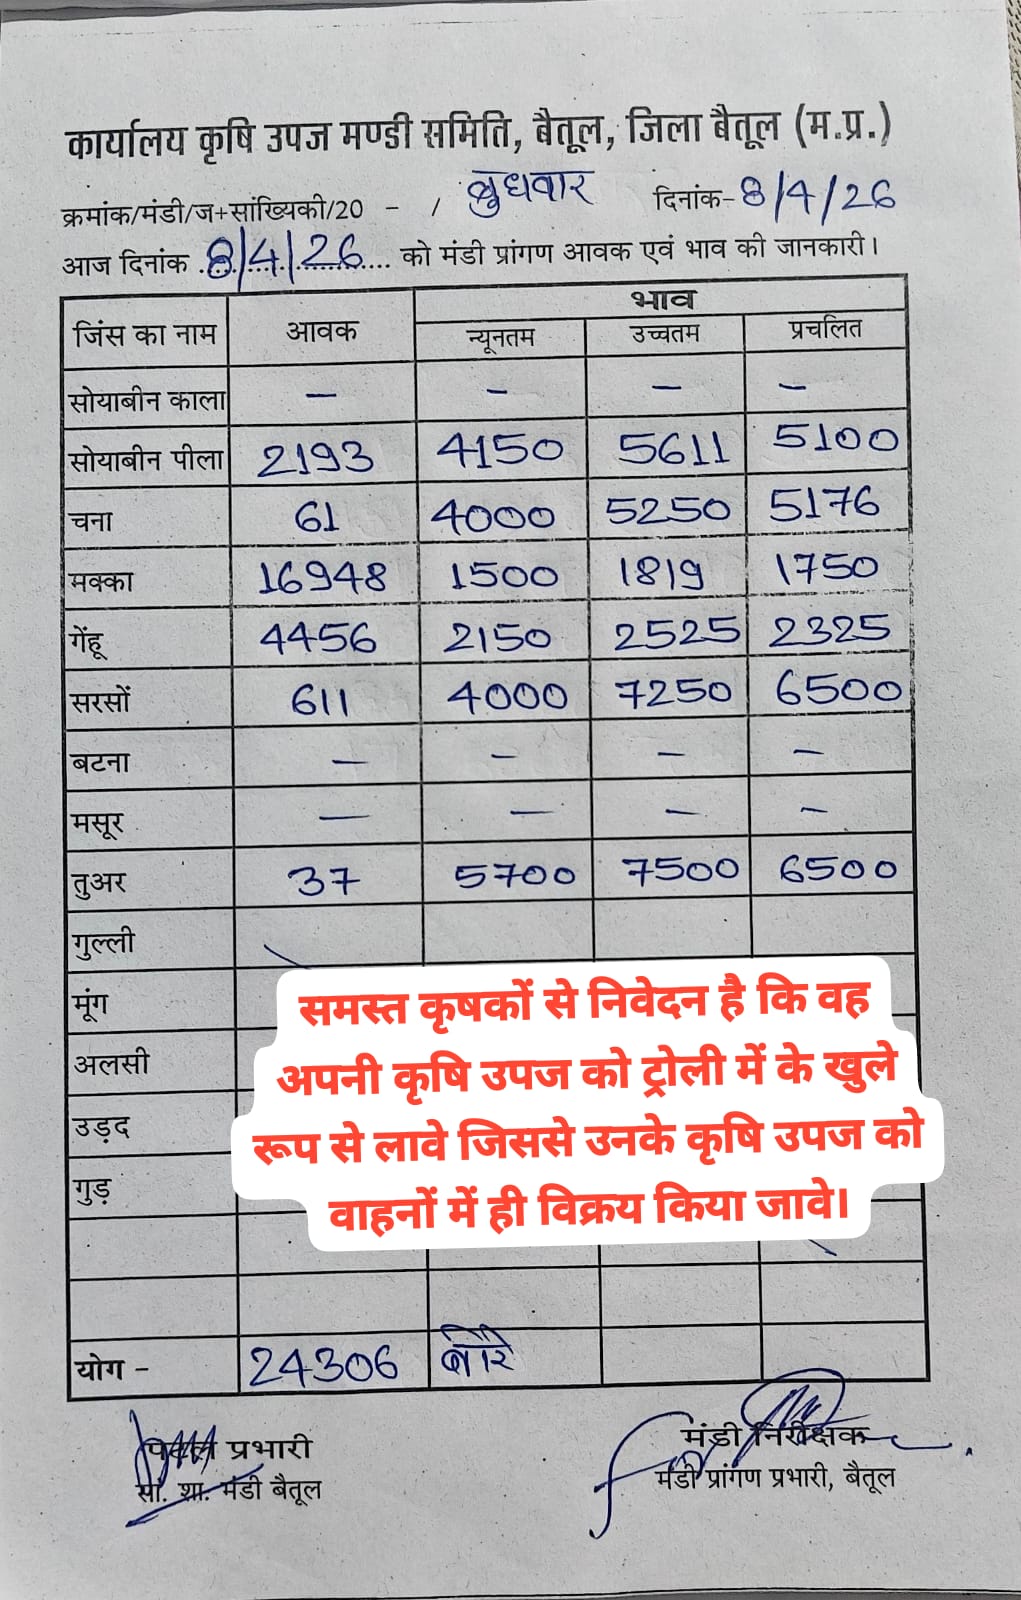 कार्यालय कृषि उपज मण्डी समिति, बैतूल, जिला बैतूल (म.प्र.)
क्रमांक/मंडी/ज+सांख्यिकी/20 - / बुधवार दिनांक- 8/4/26
आज दिनांक 8/4/26 को मंडी प्रांगण आवक एवं भाव की जानकारी।
जिंस का नाम आवक भाव
न्यूनतम उच्चतम प्रचलित
सोयाबीन काला - - - -
सोयाबीन पीला 2193 4150 5611 5100
चना 61 4000 5250 5176
मक्का 16948 1500 1819 1750
गेंहू 4456 2150 2525 2325
सरसों 611 4000 7250 6500
बटना - - - -
मसूर - - - -
तुअर 37 5700 7500 6500
गुल्ली
मूंग
अलसी
उड़द
गुड़
समस्त कृषकों से निवेदन है कि वह
अपनी कृषि उपज को ट्रोली में के खुले
रूप से लावे जिससे उनके कृषि उपज को
वाहनों में ही विक्रय किया जावे।
योग - 24306 बोरे
प्रभारी मंडी निरीक्षक
सां. शा. मंडी बैतूल मंडी प्रांगण प्रभारी, बैतूल